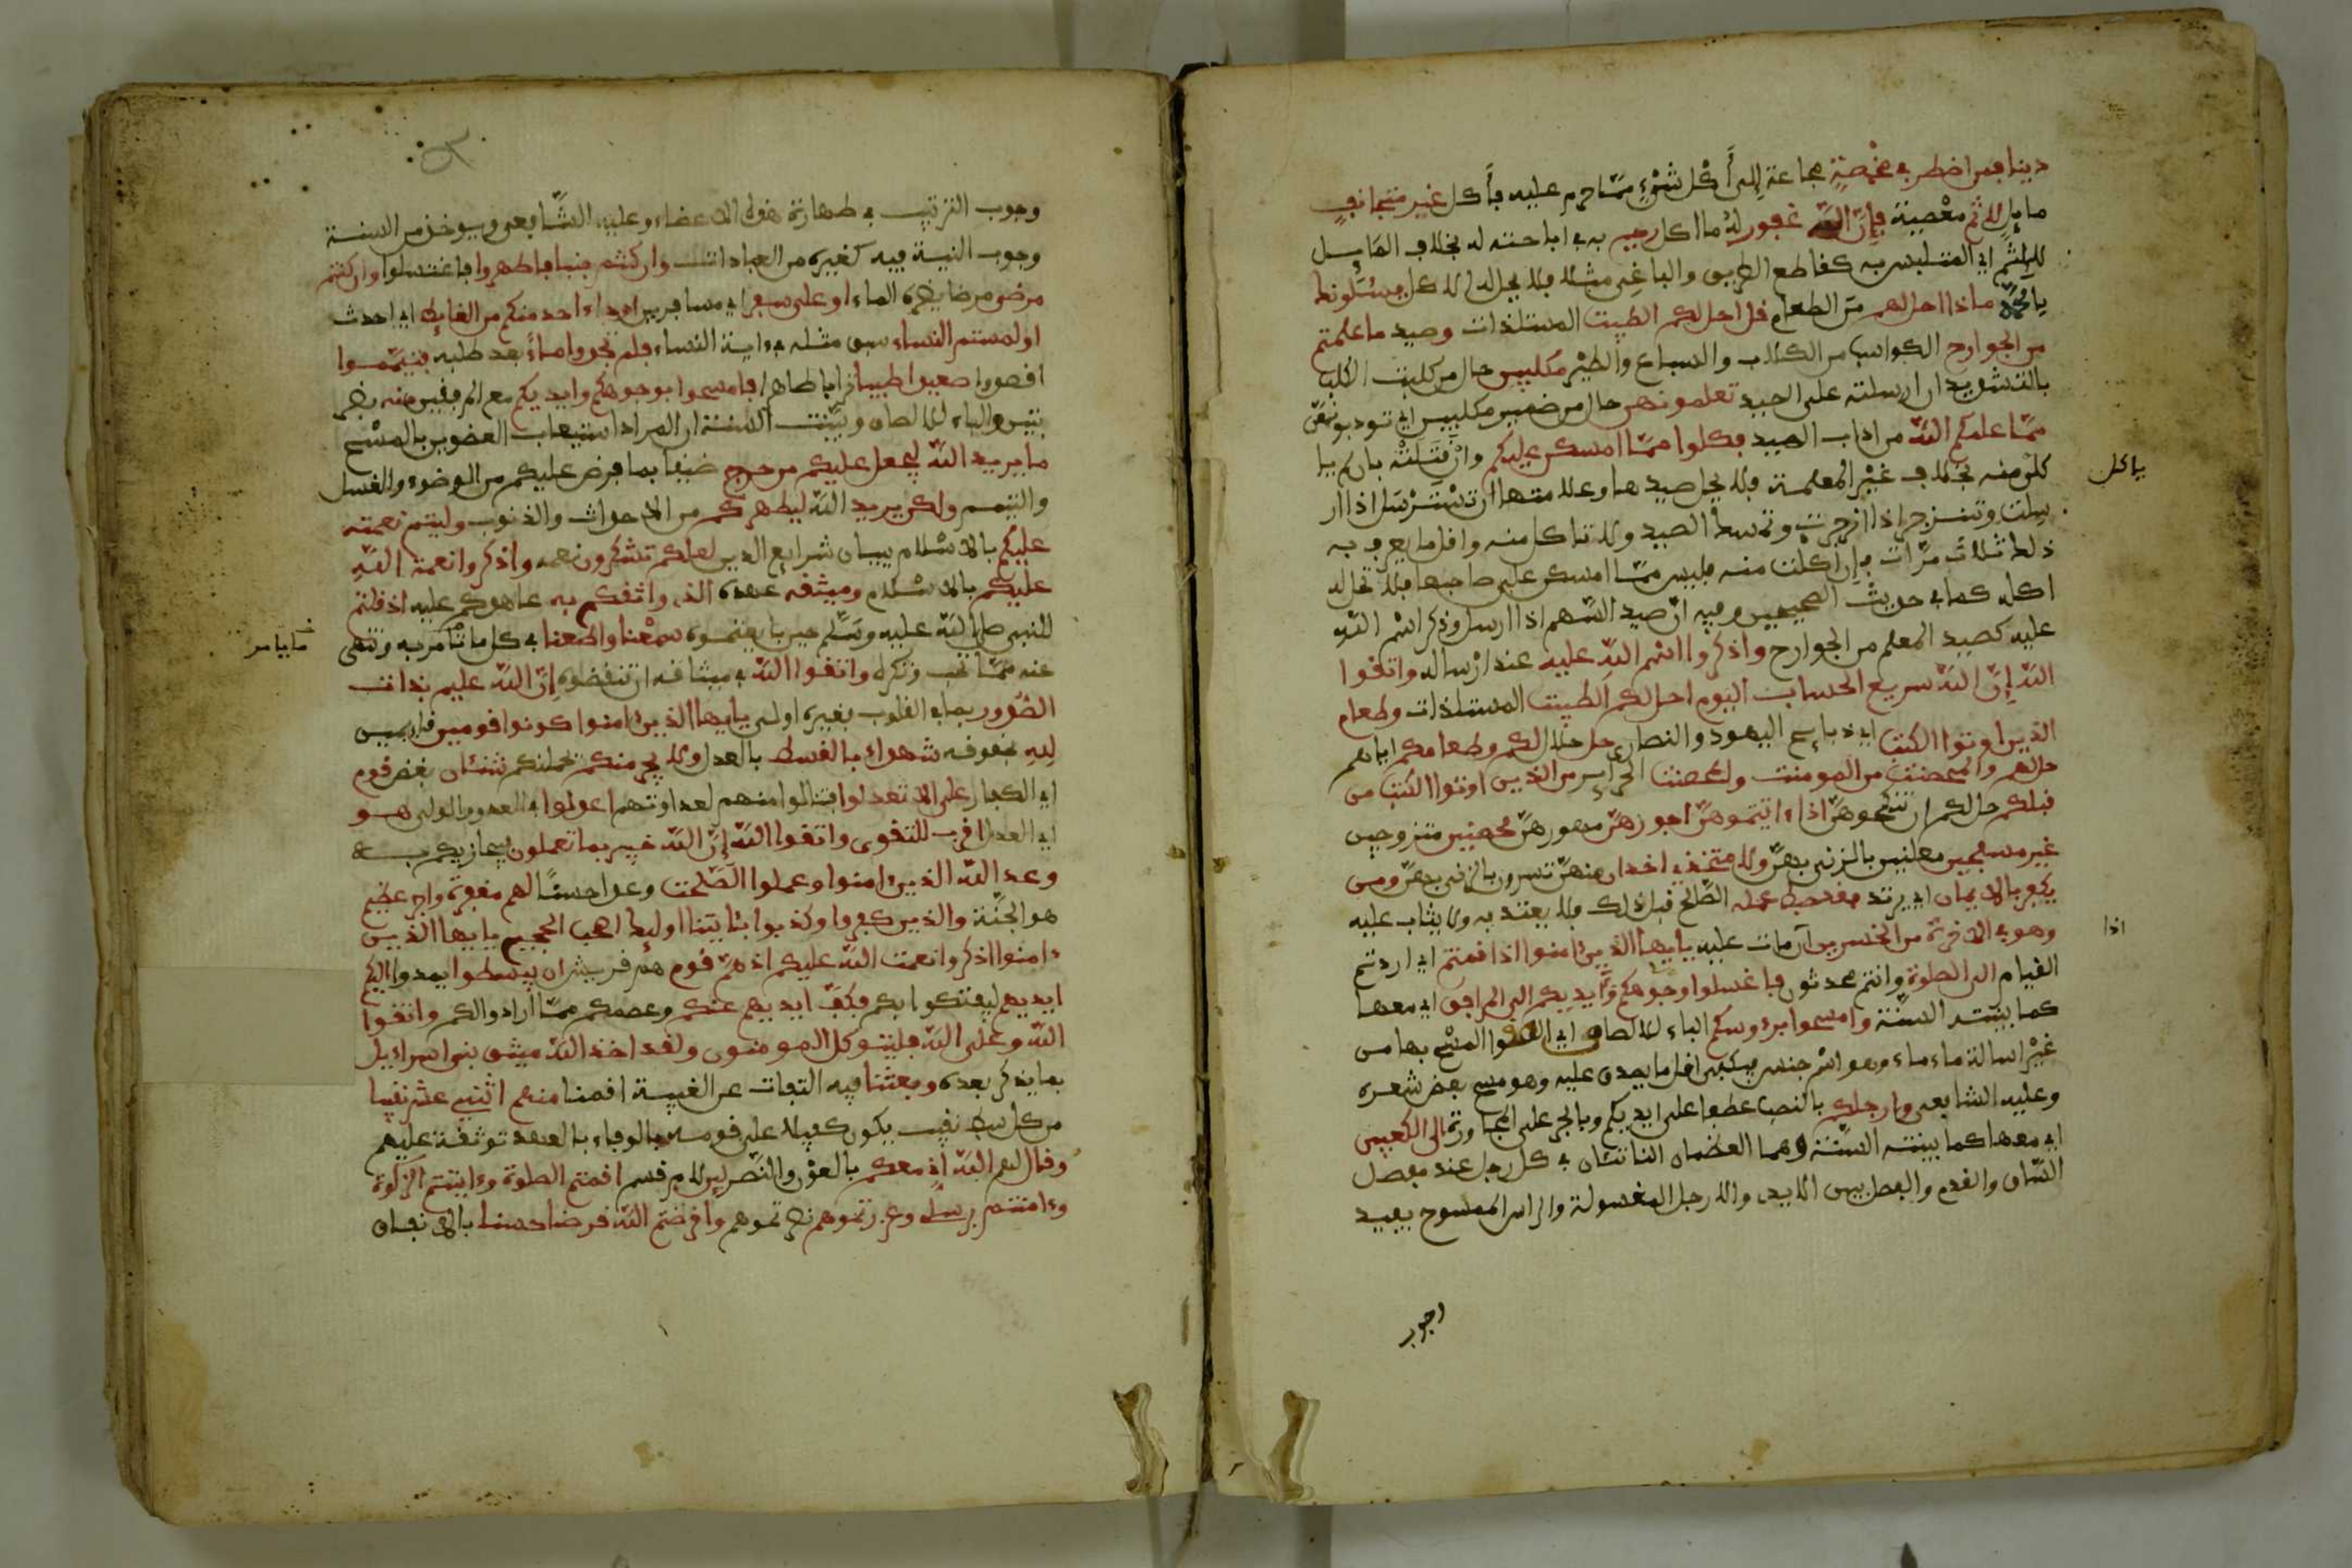 دينا فمن اضطر في مخمصة مجاعة إلى أكل شيء مما حرم عليه فأكل غير متجانف
مايل لإثم معصية فإن الله غفور له ما اكل رحيم به في اباحته له بخلاف المايل
للإثم اي المتلبس به كقاطع الطريق والباغي مثلا فلا يحل له الاكل يسئلونك
يا محمد ماذا احل لهم من الطعام قل احل لكم الطيبت المستلذات وصيد ما علمتم
من الجوارح الكواسب من الكلاب والسباع والطير مكلبين حال من كلبت الكلب
بالتشديد اي ارسلته على الصيد تعلمونهن حال من ضمير مكلبين اي تودبونهن
مما علمكم الله من اداب الصيد فكلوا مما امسكن عليكم وإن قتلته بان لم يا
كلن منه بخلاف غير المعلمة فلا يحل صيدها وعلامتها ان تسترسل اذا ار
سلت وتنزجر اذا زجرت وتمسك الصيد ولا تاكل منه واقل ما يعرف به
ذلك ثلاث مرات فإن اكلت منه فليس مما امسكن على صاحبها فلا يحل له
اكله كما في حديث الصحيحين وفيه ان صيد السهم اذا ارسل وذكر اسم الله
عليه كصيد المعلم من الجوارح واذكروا اسم الله عليه عند إرساله واتقوا
الله إن الله سريع الحساب اليوم احل لكم الطيبت المستلذات وطعام
الذين اوتوا الكتب اي ذبايح اليهود والنصارى حل حلال لكم وطعامكم اياهم
حل لهم والمحصنت من المومنت والمحصنت الحراير من الذين اوتوا الكتب من
قبلكم حل لكم ان تنكحوهن اذا ءاتيتموهن اجورهن مهورهن محصنين متزوجين
غير مسفحين معلنين بالزنى بهن ولا متخذي اخدان منهن تسرون بالزنى بهن ومن
يكفر بالايمان اي يرتد فقد حبط عمله الصلح قبل ذلك فلا يعتد به ولا يثاب عليه
وهو في الاخرة من الخسرين اذا مات عليه يايها الذين ءامنوا اذا قمتم اي اردتم
القيام الى الصلوة وانتم محدثون فاغسلوا وجوهكم وأيديكم الى المرافق اي معها
كما بينته السنة وامسحوا برءوسكم الباء للالصاق اي الصقوا المسح بها من
غير اسالة ماء وهو اسم جنس فيكفي اقل ما يصدق عليه وهو مسح بعض شعره
وعليه الشافعي وارجلكم بالنصب عطفا على ايديكم وبالجر على المجاورة الى الكعبين
اي معهما كما بينته السنة وهما العظمان الناتئان في كل رجل عند مفصل
الساق والقدم والفصل بين الايدي والارجل المغسولة والراس الممسوح يفيد
ياكل
اذا
وجوب
وجوب الترتيب في طهارة هذه الاعضاء وعليه الشافعي ويوخذ من السنة
وجوب النية فيه كغيره من العبادات وان كنتم جنبا فاطهروا فاغتسلوا وان كنتم
مرضى مرضا يضره الماء او على سفر اي مسافرين او جاء احد منكم من الغايط اي احدث
او لمستم النساء سبق مثله في ءاية النساء فلم تجدوا ماء بعد طلبه فتيمموا
اقصدوا صعيدا طيبا ترابا طاهرا فامسحوا بوجوهكم وايديكم مع المرفقين منه بضر
بتين والباء للالصاق وبينت السنة ان المراد استيعاب العضوين بالمسح
ما يريد الله ليجعل عليكم من حرج ضيق بما فرض عليكم من الوضوء والغسل
والتيمم ولكن يريد الله ليطهركم من الاحداث والذنوب وليتم نعمته
عليكم بالاسلام ببيان شرايع الدين لعلكم تشكرون نعمه واذكروا نعمة الله
عليكم بالاسلام وميثقه عهده الذي واثقكم به عاهدكم عليه اذ قلتم
للنبي صلى الله عليه وسلم حين بايعتموه سمعنا واطعنا في كل ما تأمر به وتنهى
عنه مما نحب ونكره واتقوا الله في ميثاقه ان تنقضوه إن الله عليم بذات
الصدور بما في القلوب فبغيره اولى يايها الذين ءامنوا كونوا قومين قايمين
لله بحقوقه شهداء بالقسط بالعدل ولا يجرمنكم يحملنكم شنئان بغض قوم
اي الكفار على الا تعدلوا فتنالوا منهم لعداوتهم اعدلوا في العدو والولي هو
اي العدل اقرب للتقوى واتقوا الله إن الله خبير بما تعملون فيجازيكم به
وعد الله الذين ءامنوا وعملوا الصلحت وعدا حسنا لهم مغفرة واجر عظيم
هو الجنة والذين كفروا وكذبوا بئايتنا اوليك اصحب الجحيم يايها الذين
ءامنوا اذكروا نعمت الله عليكم اذ هم قوم هم قريش ان يبسطوا يمدوا اليكم
ايديهم ليفتكوا بكم فكف ايديهم عنكم وعصمكم مما ارادوا لكم واتقوا
الله وعلى الله فليتوكل المومنون ولقد اخذ الله ميثق بني اسراءيل
بما يذكر بعده وبعثنا فيه التفات عن الغيبة اقمنا منهم اثني عشر نقيبا
من كل سبط نقيب يكون كفيلا على قومه بالوفاء بالعهد توثقة عليهم
وقال لهم الله إني معكم بالعون والنصر لين لام قسم اقمتم الصلوة وءاتيتم الزكوة
وءامنتم برسلي وعزرتموهم نصرتموهم واقرضتم الله قرضا حسنا بالانفاق
ما يامر